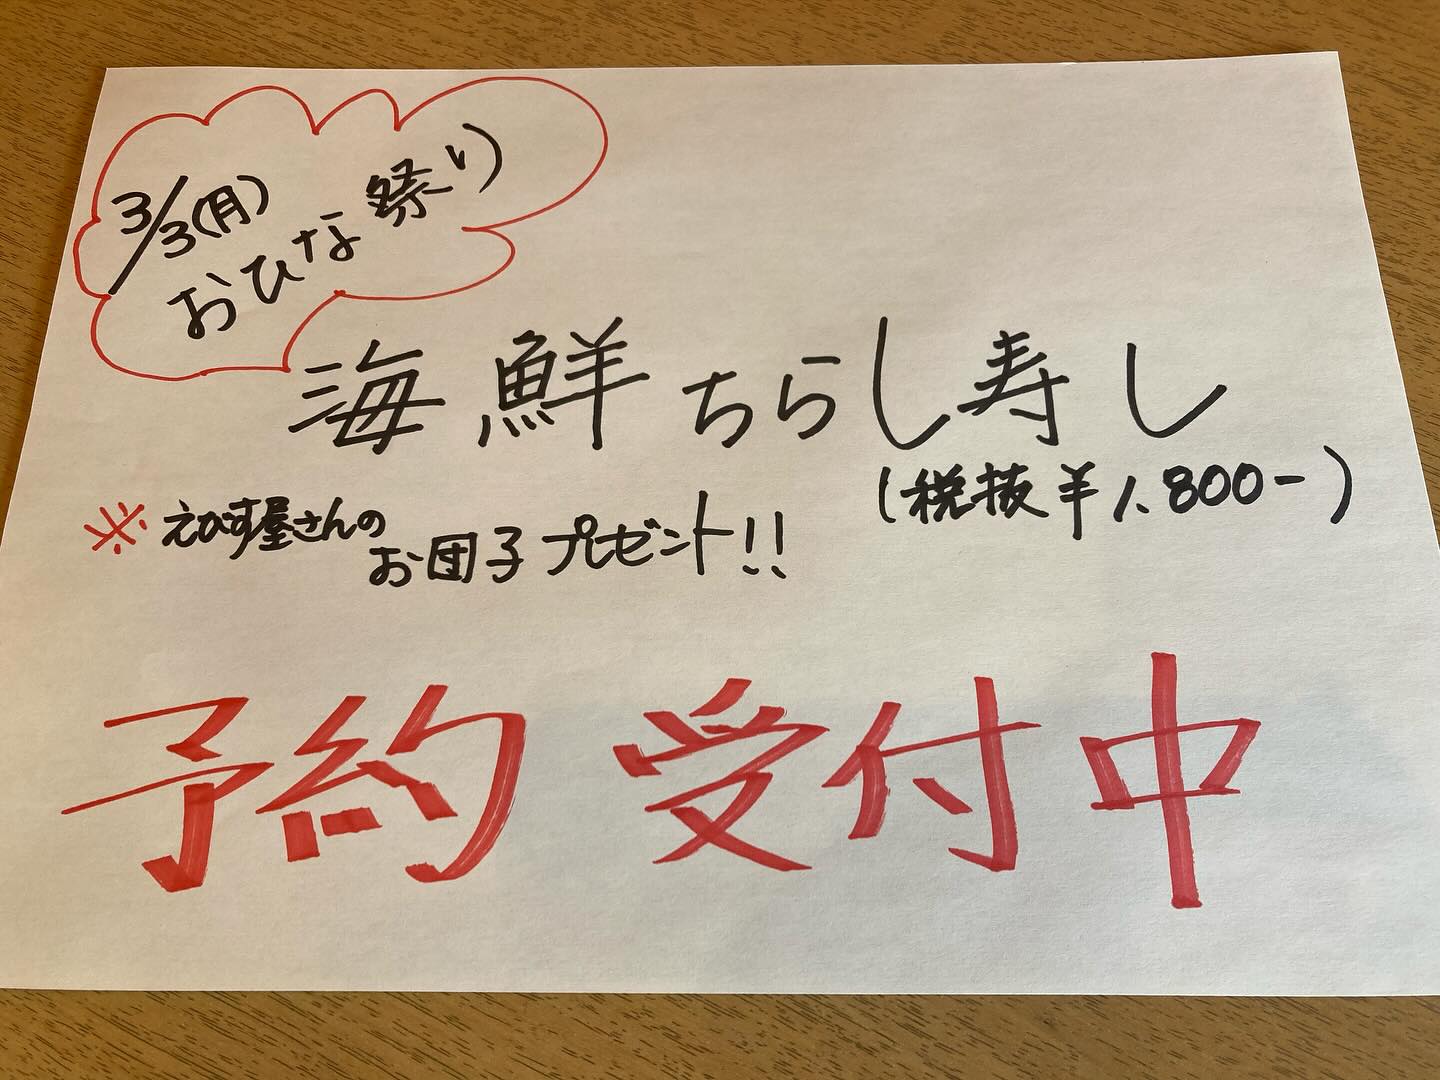 3/3(月)
おひな祭り
海鮮ちらし寿し
(税抜¥1.800-)
※えびす屋さんの
お団子プレゼント!!
予約受付中